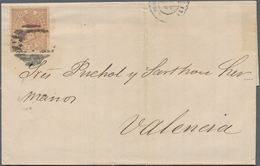 Sres Puchol y Sarthou Her-
manos
Valencia